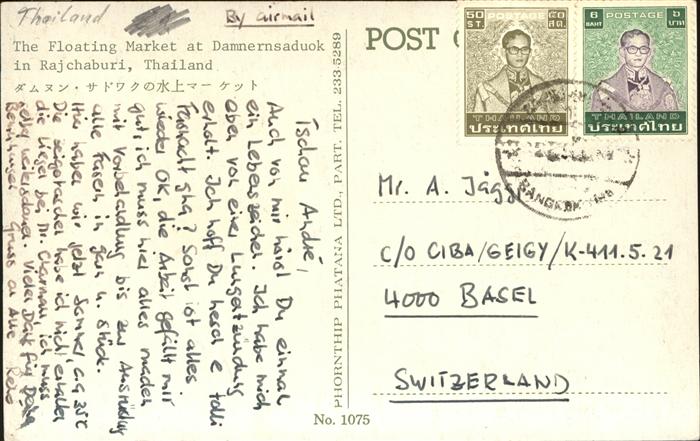 Thailand
By airmail
The Floating Market at Damnernsaduok
in Rajchaburi, Thailand
ダムヌン・サドワクの水上マーケット
POST
PHORNTHIP PHATANA LTD., PART. TEL. 233-5289
No. 1075
Tschau André,
Auch von mir hörst Du einmal
ein Lebenszeichen. Ich habe mich
aber von einer
erholt. Ich hoff Du hesch e tolli
Fasnacht gha? Sonst ist alles
wieder OK, die Arbeit gefällt mir
gut, ich muss hier alles machen
mit Vorbehandlung bis zur
alle Fasern in
Hier haben wir jetzt Sommer ca 35°C
Die habe ich nicht erhalten
die bei Dr. ich muss
Vielen Dank für Deine
Gruss an Alle
50 ST. POSTAGE ๕๐ สต.
THAILAND
ประเทศไทย
6 BAHT POSTAGE ๖ บาท
THAILAND
ประเทศไทย
BANGKOK
Mr. A. Jäggi
c/o CIBA/GEIGY/K-411.5.21
4000 BASEL
SWITZERLAND